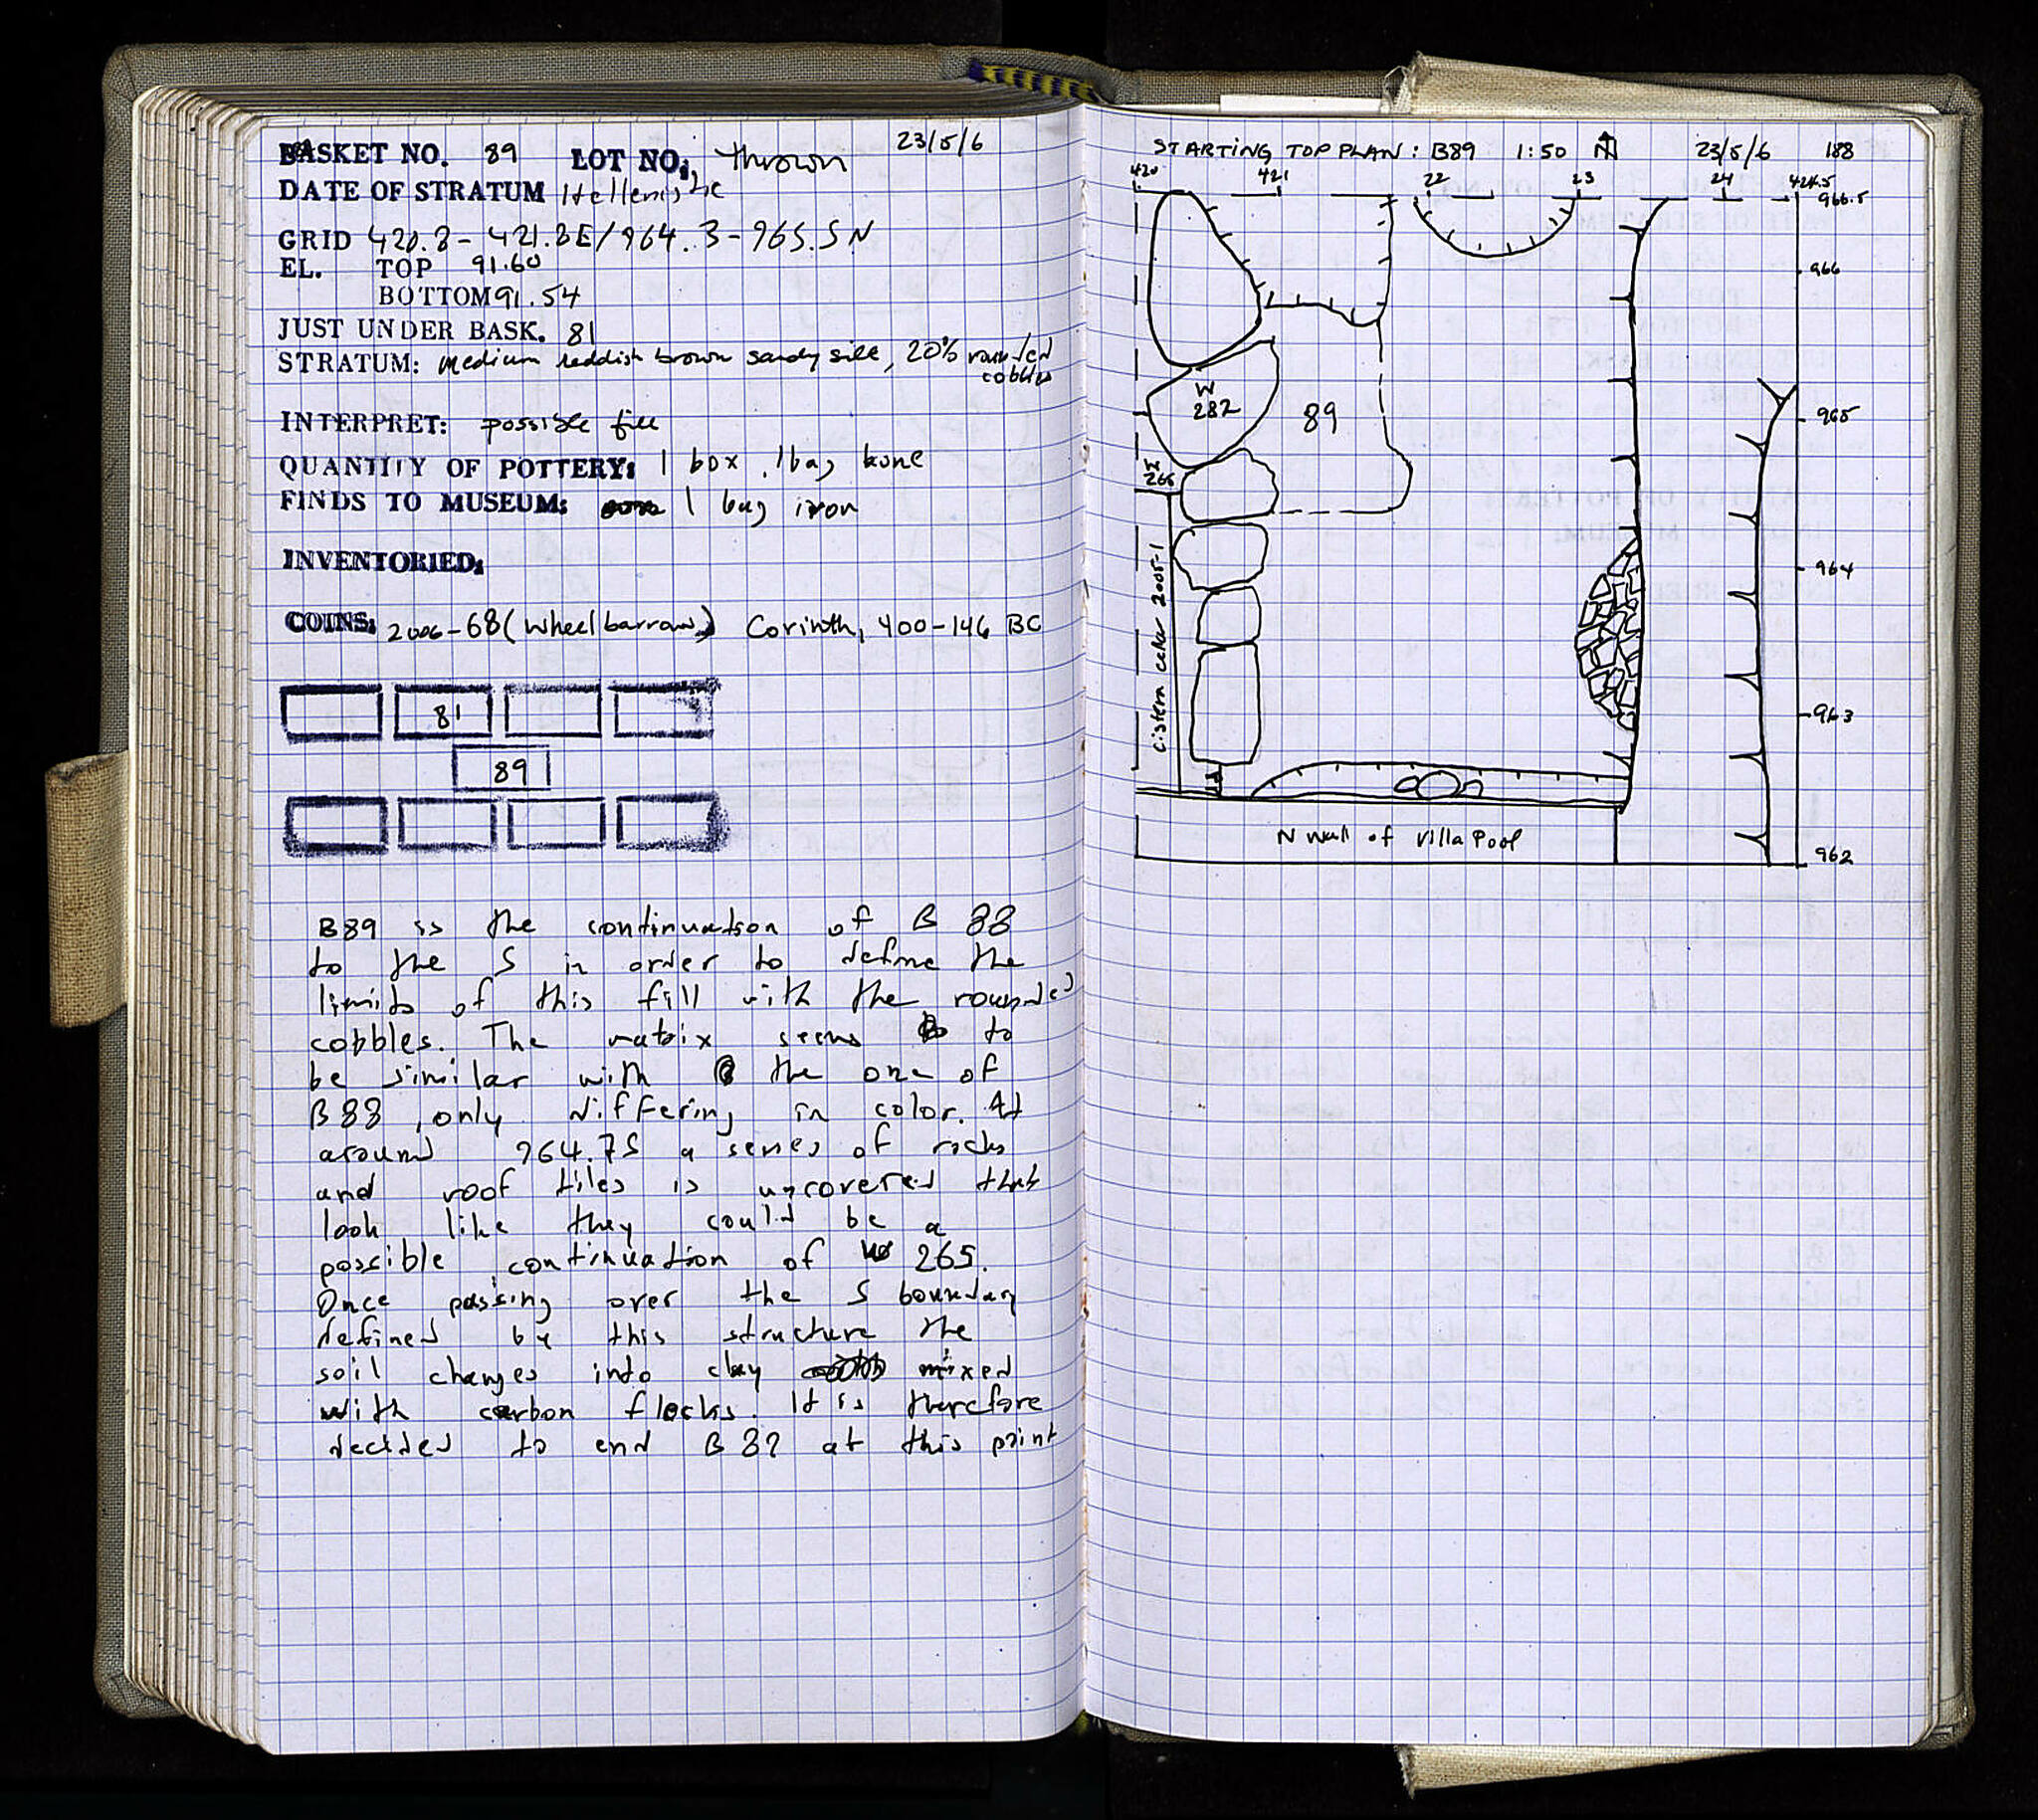 23/5/6
BASKET NO. 89 LOT NO; thrown
DATE OF STRATUM Hellenistic
GRID 420.8 - 421.8E/964.3-965.5N
EL. TOP 91.60
BOTTOM 91.54
JUST UNDER BASK. 81
STRATUM: medium reddish brown sandy silt, 20% rounded
cobbles
INTERPRET: possible fill
QUANTITY OF POTTERY: 1 box, 1 bag bone
FINDS TO MUSEUM: 1 bag iron
INVENTORIED:
COINS: 2006-68 (wheelbarrow) Corinth, 400-146 BC
81
89
B89 is the continuation of B 88
to the S in order to define the
limits of this fill with the rounded
cobbles. The matrix seems to
be similar with the one of
B88, only differing in color. At
around 964.75 a series of rocks
and roof tiles is uncovered that
look like they could be a
possible continuation of W 265.
Once passing over the S boundary
defined by this structure the
soil changes into clay mixed
with carbon flecks. It is therefore
decided to end B 89 at this point
STARTING TOP PLAN: B89 1:50 N 23/5/6 188
420 421 22 23 24 424.5
966.5
966
W
282
89
965
W
265
964
cistern cellar 2005-1
963
N wall of Villa Pool
962